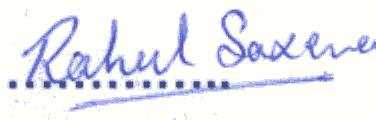 Rahul Saxena